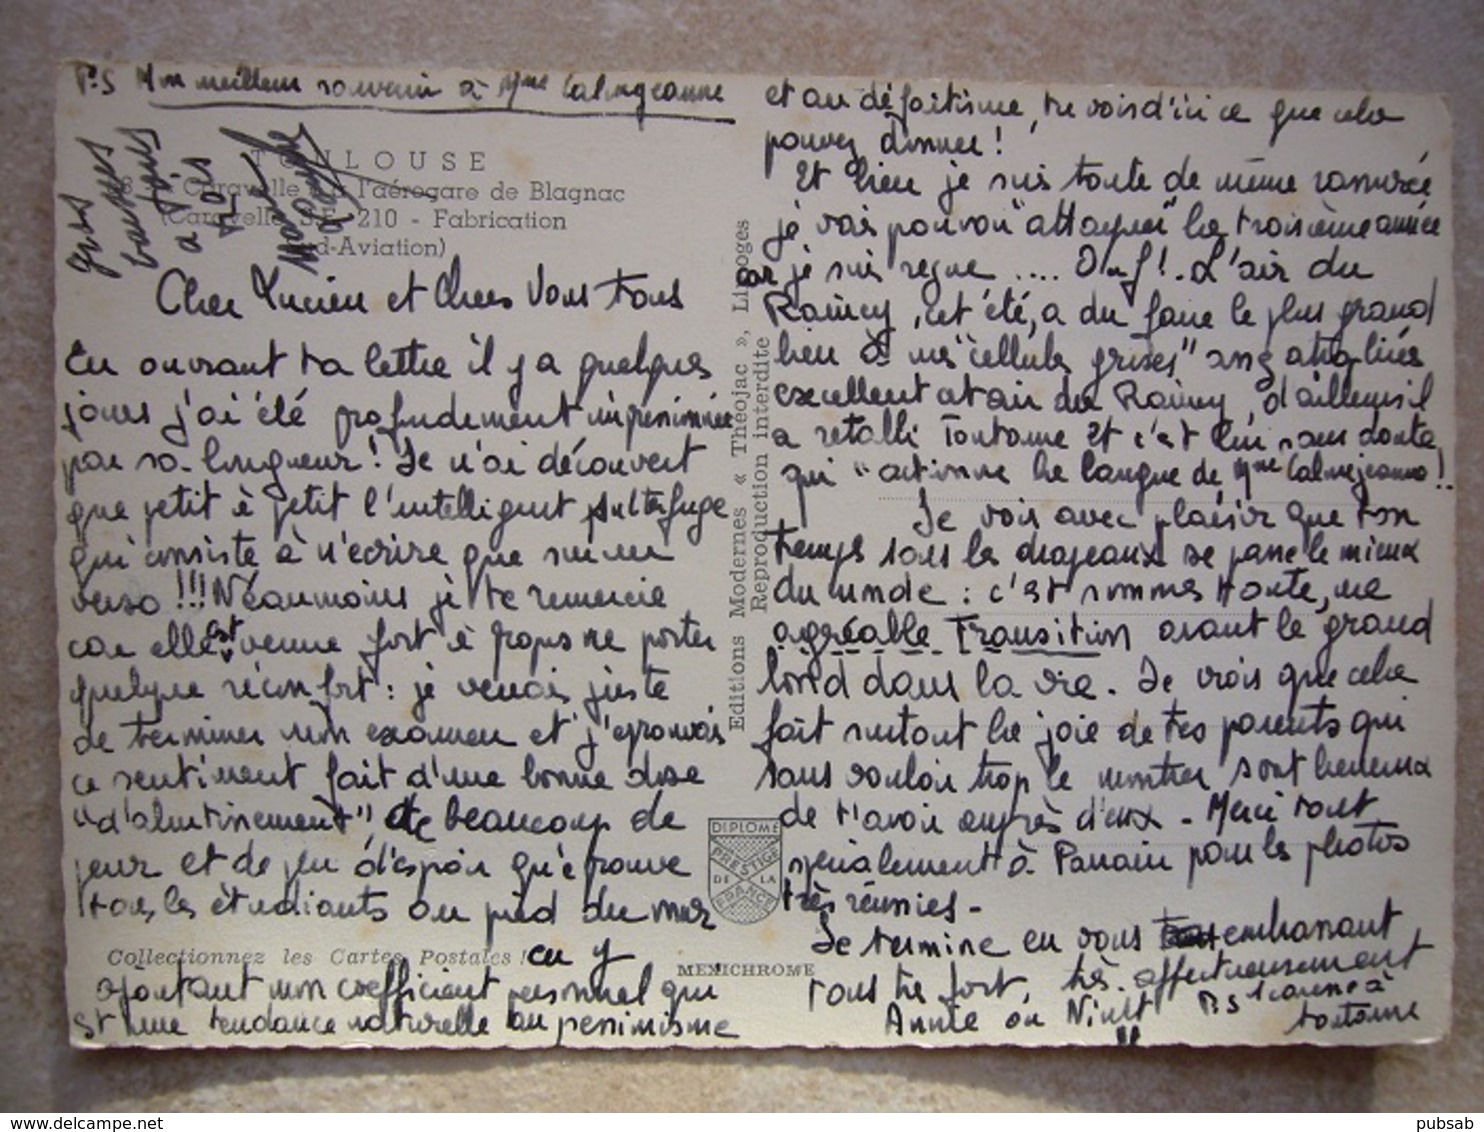 P.S Mon meilleur souvenir à Mme Calmejeanne
TOULOUSE
Caravelle à l'aérogare de Blagnac
(Caravelle S.E. 210 - Fabrication
Sud-Aviation)
gros
baisers
à
Cher Lucien et Chers Vous tous
En ouvrant ta lettre il y a quelques
jours j'ai été profondément impressionnée
par sa longueur ! Je n'ai découvert
que petit à petit l'intelligent subterfuge
qui consiste à n'écrire que sur un
verso !!! Néanmoins je te remercie
car elle est venue fort à propos me porter
quelque réconfort : je venais juste
de terminer mon examen et j'éprouvais
ce sentiment fait d'une bonne dose
"d'abrutissement", de beaucoup de
peur et de peu d'espoir qu'éprouve
tous les étudiants au pied du mur
Collectionnez les Cartes Postales !
en y
ajoutant mon coefficient personnel qui
est une tendance naturelle au pessimisme
Editions Modernes « Théojac », Limoges
Reproduction interdite
DIPLOME
PRESTIGE
DE LA
FRANCE
MEXICHROME
et au défaitisme, tu vois d'ici ce que cela
pouvez donner !
Et bien je suis toute de même rassurée
je vais pouvoir "attaquer" la troisième année
car je suis reçue .... Ouf ! L'air du
Raincy, cet été, a du faire le plus grand
bien à mes "cellules grises"
excellent cet air du Raincy, d'ailleurs il
a retabli Tontome et c'est lui sans doute
qui "actionne la langue de Mme Calmejeanne !
Je vois avec plaisir que ton
temps sous les drapeaux se passe le mieux
du monde : c'est somme toute, une
agréable transition avant le grand
bond dans la vie. Je crois que cela
fait surtout la joie de tes parents qui
sans vouloir trop le montrer sont heureux
de t'avoir auprès d'eux - Merci tout
spécialement à Parrain pour les photos
très réussies -
Je termine en vous embrassant
tous très fort, très affectueusement
Annie ou Ninit
P.S à
tontome
pubsab